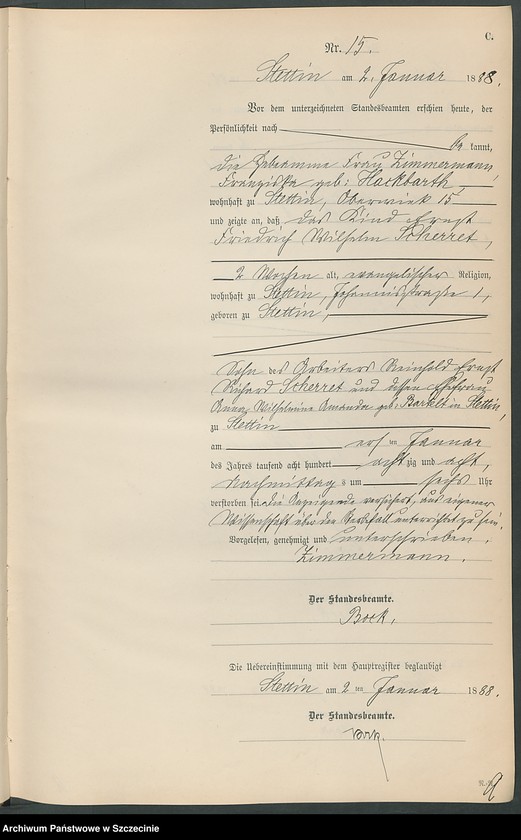 C.
Nr. 15.
Stettin am 2. Januar 1888.
Vor dem unterzeichneten Standesbeamten erschien heute, der
Persönlichkeit nach
be kannt,
die Hebamme Frau Zimmermann,
Franziska geb: Hackbarth,
wohnhaft zu Stettin, Oberwiek 15
und zeigte an, daß das Kind Ernst
Friedrich Wilhelm Scherret,
2 Wochen alt, evangelischer Religion,
wohnhaft zu Stettin, Johannisstraße 1,
geboren zu Stettin,
Sohn des Arbeiters Reinhold Ernst
Richard Scherret und dessen Ehefrau
Anna Wilhelmine Amanda geb: Bartelt in Stettin,
zu Stettin
am ersten Januar
des Jahres tausend acht hundert achtzig und acht,
Nachmittags um sechs Uhr
verstorben sei. die Anzeigende versichert, aus eigener
Wissenschaft über den Sterbfall unterrichtet zu sein.
Vorgelesen, genehmigt und unterschrieben.
Zimmermann.
Der Standesbeamte.
Bock.
Die Uebereinstimmung mit dem Hauptregister beglaubigt
Stettin am 2 ten Januar 1888.
Der Standesbeamte.
Bock.
Archiwum Państwowe w Szczecinie